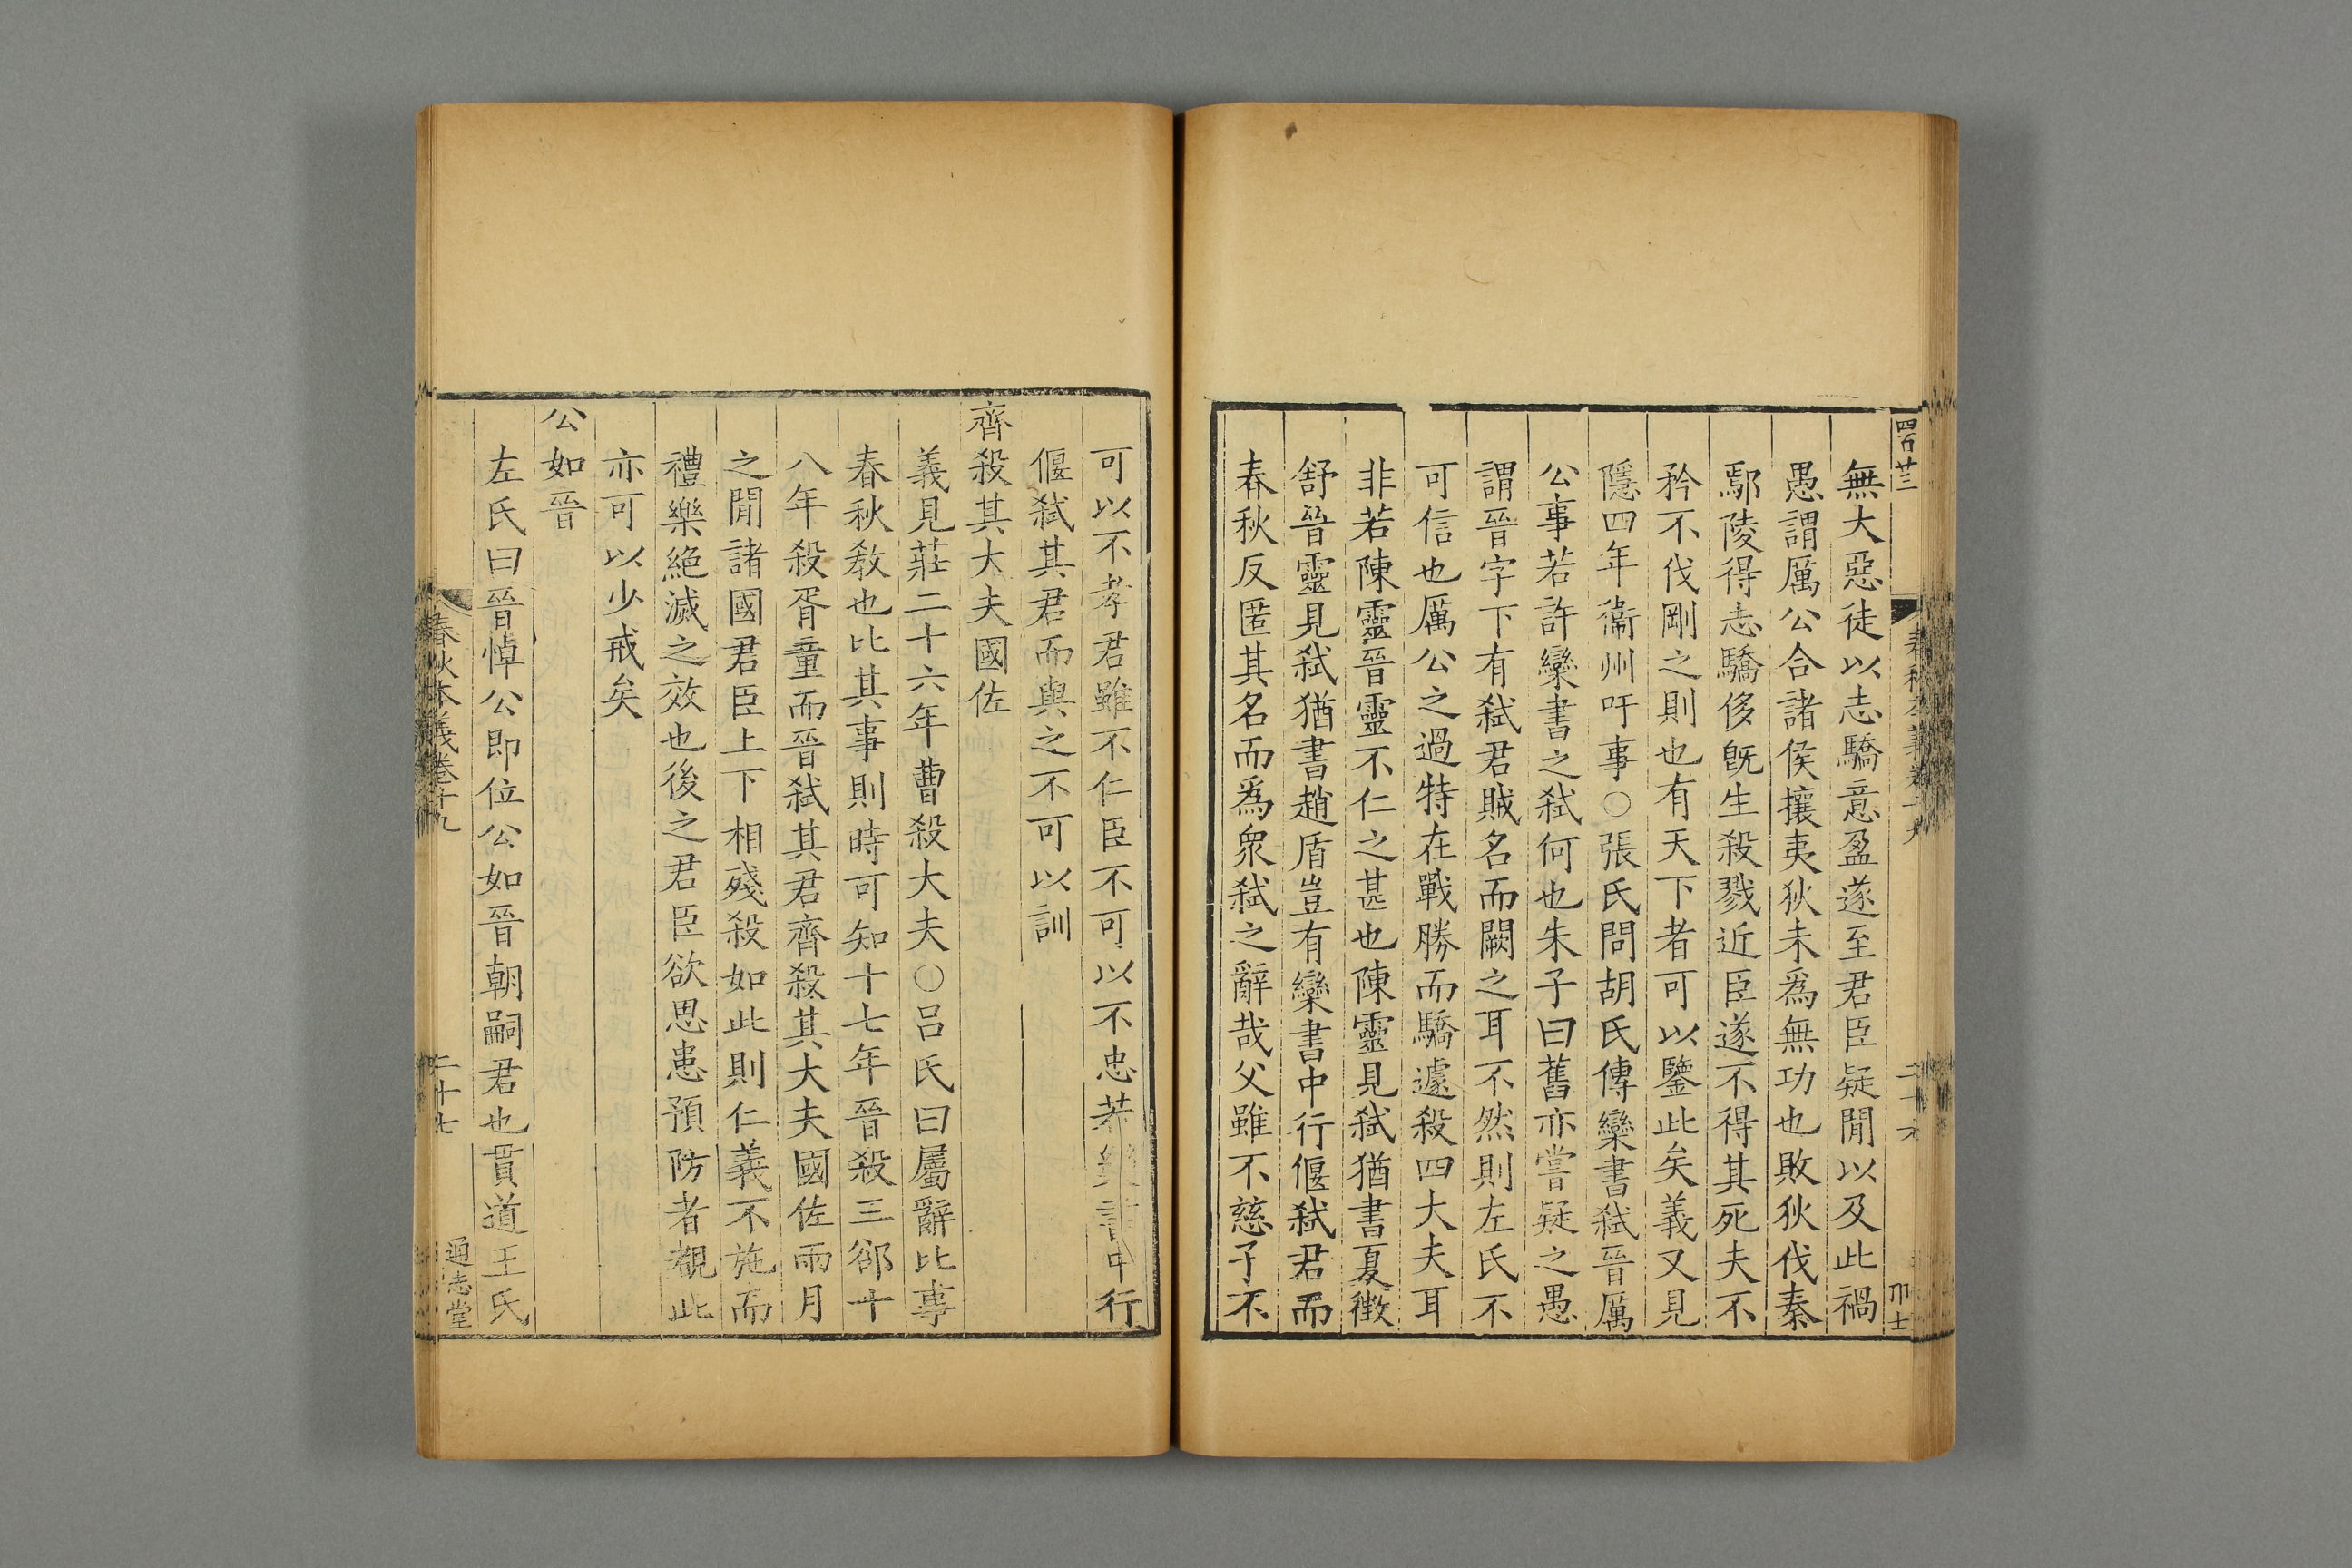 四百廿三
無大惡徒以志驕意盈遂至君臣疑閒以及此禍
愚謂厲公合諸侯攘夷狄未爲無功也敗狄伐秦
鄢陵得志驕侈旣生殺戮近臣遂不得其死夫不
矜不伐剛之則也有天下者可以鑒此矣義又見
隱四年衞州吁事○張氏問胡氏傳欒書弑晉厲
公事若許欒書之弑何也朱子曰舊亦嘗疑之愚
謂晉字下有弑君賊名而闕之耳不然則左氏不
可信也厲公之過特在戰勝而驕遽殺四大夫耳
非若陳靈晉靈不仁之甚也陳靈見弑猶書夏徵
舒晉靈見弑猶書趙盾豈有欒書中行偃弑君而
春秋反匿其名而爲衆弑之辭哉父雖不慈子不
可以不孝君雖不仁臣不可以不忠若欒書中行
偃弑其君而與之不可以訓
齊殺其大夫國佐
義見莊二十六年曹殺大夫○呂氏曰屬辭比事
春秋敎也比其事則時可知十七年晉殺三郤十
八年殺胥童而晉弑其君齊殺其大夫國佐兩月
之閒諸國君臣上下相殘殺如此則仁義不施而
禮樂絕滅之效也後之君臣欲思患預防者觀此
亦可以少戒矣
公如晉
左氏曰晉悼公即位公如晉朝嗣君也貫道王氏
春秋本義卷十九
二十七
通志堂